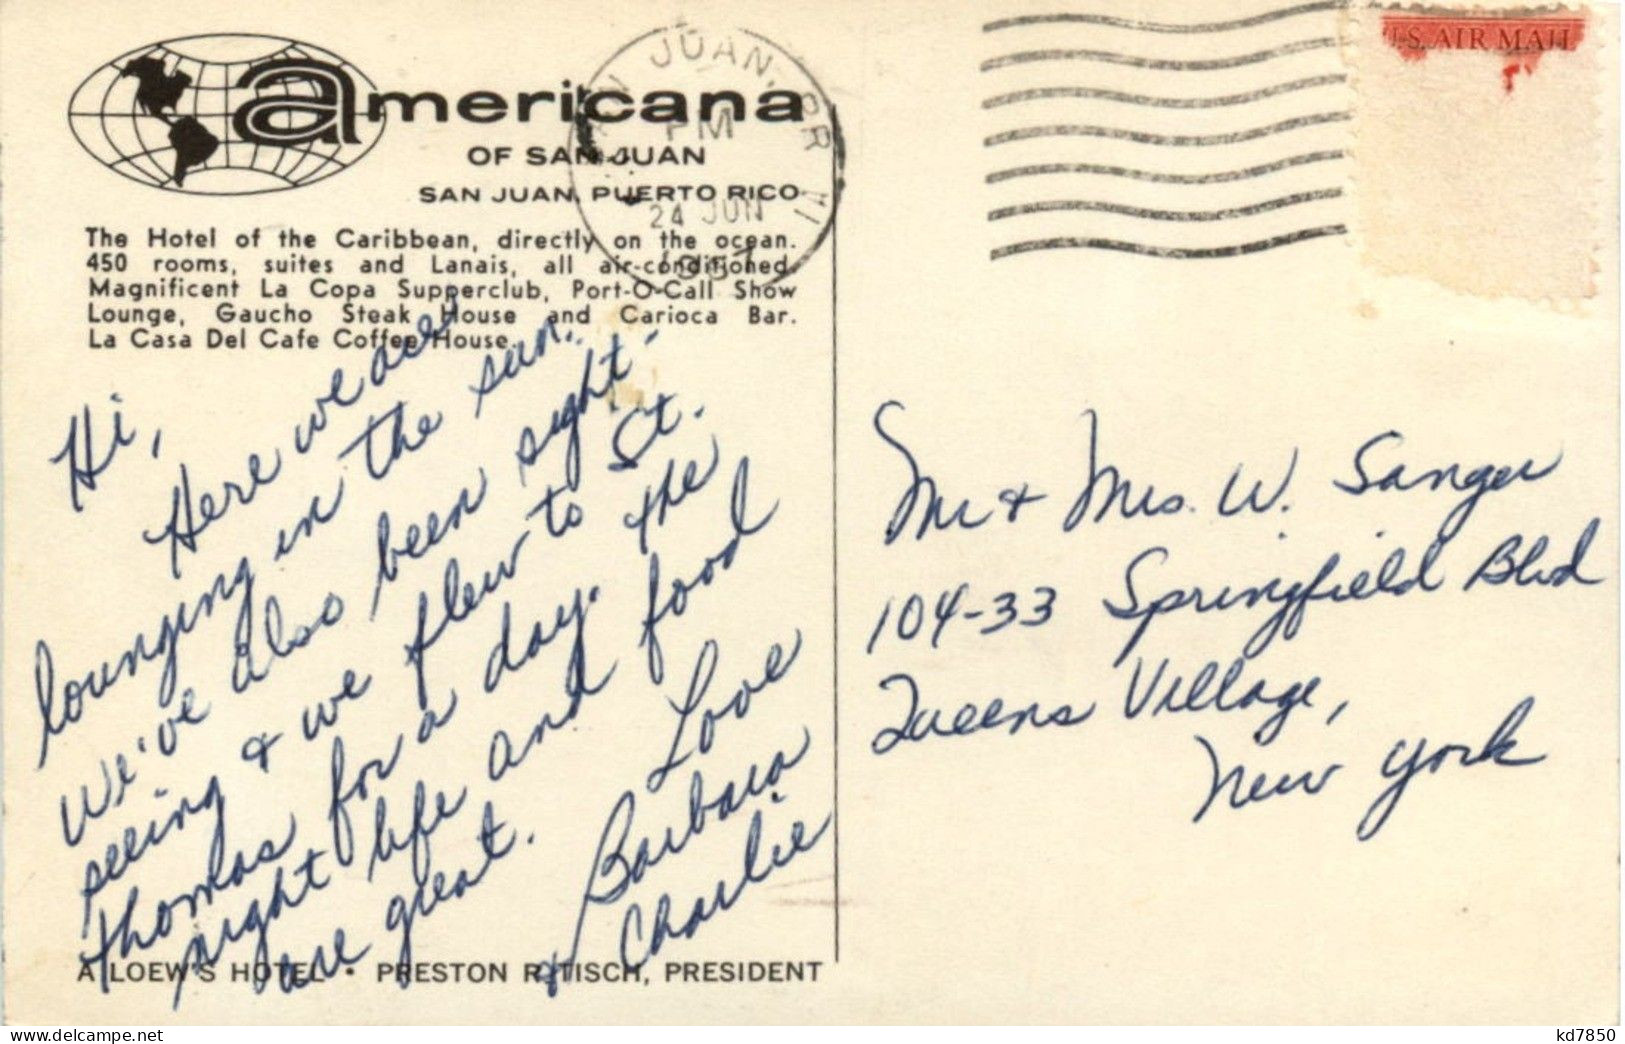 americana
OF SAN JUAN
SAN JUAN, PUERTO RICO
The Hotel of the Caribbean, directly on the ocean.
450 rooms, suites and Lanais, all air-conditioned.
Magnificent La Copa Supperclub, Port-O-Call Show
Lounge, Gaucho Steak House and Carioca Bar.
La Casa Del Cafe Coffee House.
SAN JUAN, PR VI
PM
24 JUN
U.S. AIR MAIL
Hi,
Here we are
lounging in the sun.
We've also been sight-
seeing & we flew to St.
Thomas for a day. the
night life and food
are great.
Love
Barbara
& Charlie
Mr & Mrs. W. Sanger
104-33 Springfield Blvd
Queens Village,
New York
A LOEW'S HOTEL • PRESTON R. TISCH, PRESIDENT
kd7850